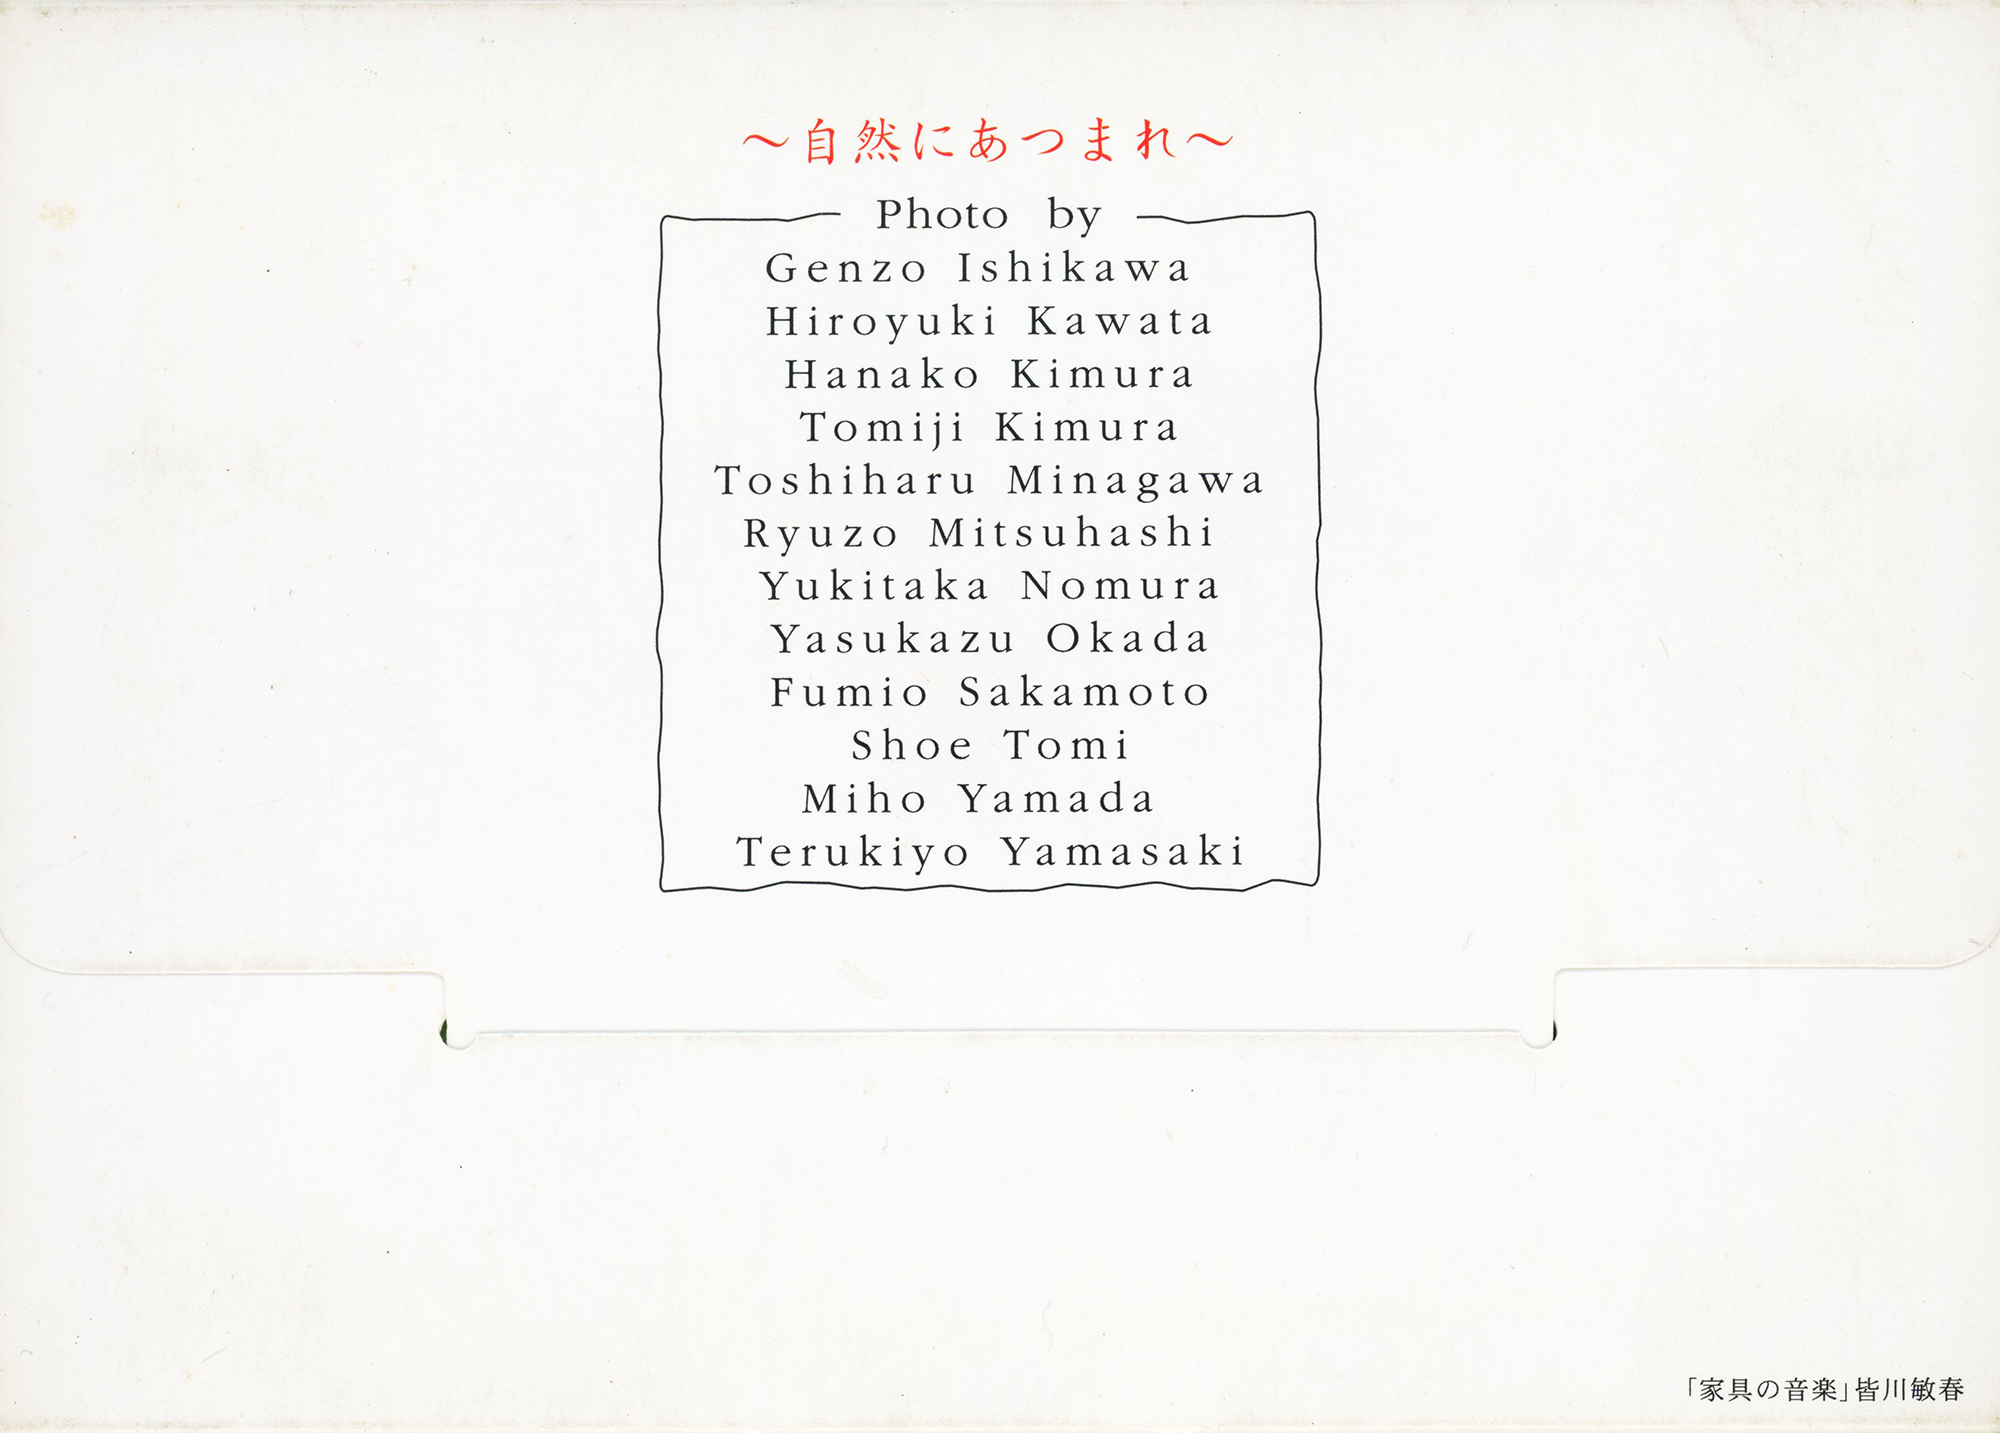 〜自然にあつまれ〜
Photo by
Genzo Ishikawa
Hiroyuki Kawata
Hanako Kimura
Tomiji Kimura
Toshiharu Minagawa
Ryuzo Mitsuhashi
Yukitaka Nomura
Yasukazu Okada
Fumio Sakamoto
Shoe Tomi
Miho Yamada
Terukiyo Yamasaki
「家具の音楽」皆川敏春